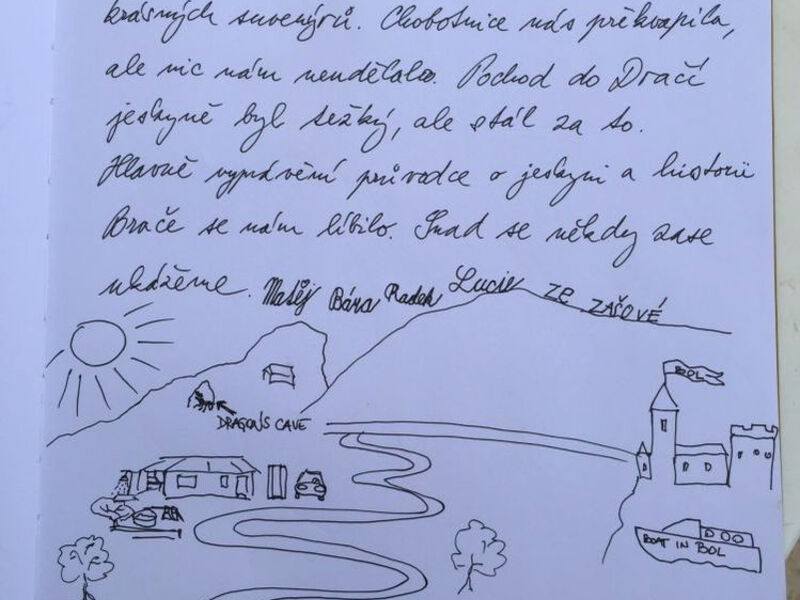 krásných suvenýrů. Chobotnice nás překvapila,
ale nic nám neudělala. Pochod do Dračí
jeskyně byl težký, ale stál za to.
Hlavně vyprávění průvodce o jeskyni a historii
Brače se nám líbilo. Snad se někdy zase
ukážeme. Matěj Bára Radek Lucie ZE ZAŠOVÉ
BOL
DRAGON'S CAVE
BOAT IN BOL